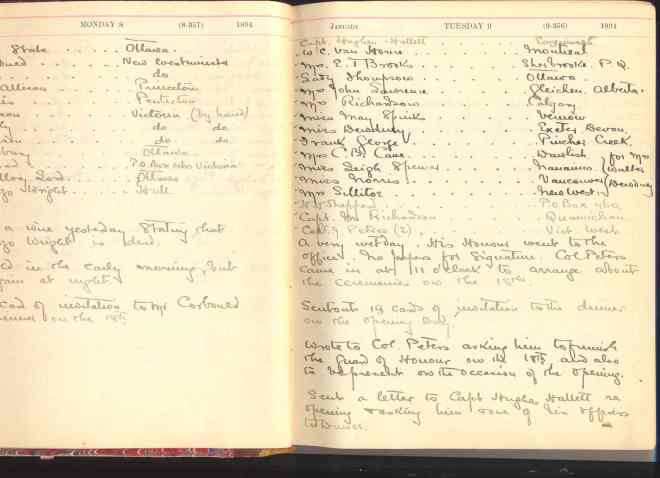 MONDAY 8 (8-357) 1894
State Ottawa.
New Westminster
do
Allison Princeton
Penticton
Victoria (by hand)
do do
do do
Ottawa
P.O. Box Victoria
Ottawa
Wright Hull
a wire yesterday stating that
Wright is dead.
in the early morning, but
again at night.
card of invitation to Mr Corbould
on the 18th
JANUARY TUESDAY 9 (9-356) 1894
Capt. Hughes Hallett
W C. Van Horne Montreal
Mr. E T Brooks Sherbrooke P.Q.
Lady Thompson Ottawa
Mr John Lawrence Gleichen Alberta.
Mr Richardson Calgary
Miss May Spinks Vernon
Miss Dewdney Exeter Devon.
Frank George Pincher Creek
Mrs C B Cave Dawlish for Mr
Miss Leigh Spencer Nanaimo Walter
Miss Norris Vancouver Dewdney
Mr Sillitoe New West.
Sheppard P.O Box 460
Capt. Richardson Quamichan
Col. Peters (2) Vict. West
A very wet day. His Honour went to the
office. No papers for signature. Col Peters
came in at 11 o'clock to arrange about
the ceremonies on the 18th.
Sent out 19 cards of invitation to the dinner
on the Opening Day.
Wrote to Col Peters asking him to furnish
the Guard of Honour on the 18th and also
to be present on the occasion of the opening.
Sent a letter to Capt Hughes Hallett re
opening & asking him & one of his officers
to Dinner.